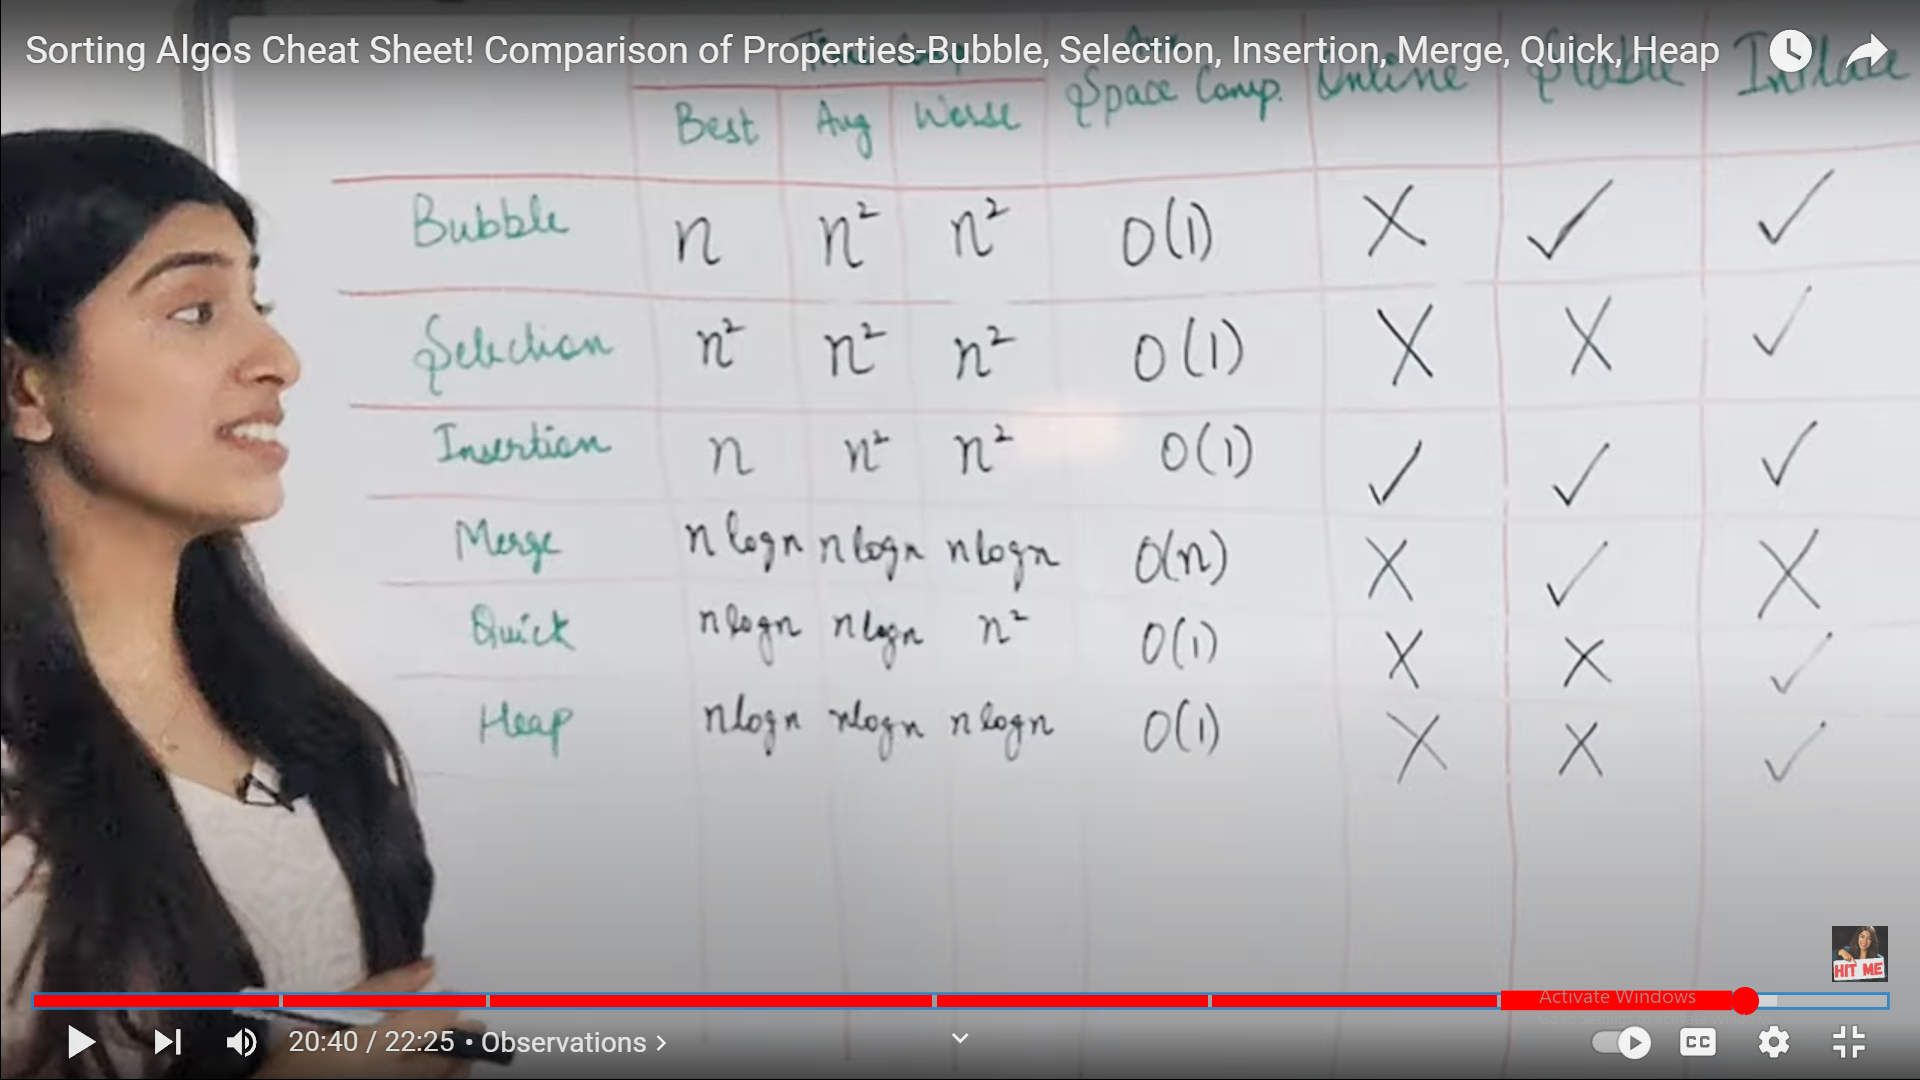 Sorting Algos Cheat Sheet! Comparison of Properties-Bubble, Selection, Insertion, Merge, Quick, Heap
Space Comp. Online Stable InPlace
Best Avg Worse
Bubble n n² n² O(1) X ✓ ✓
Selection n² n² n² O(1) X X ✓
Insertion n n² n² O(1) ✓ ✓ ✓
Merge nlogn nlogn nlogn O(n) X ✓ X
Quick nlogn nlogn n² O(1) X X ✓
Heap nlogn nlogn nlogn O(1) X X ✓
HIT ME
Activate Windows
20:40 / 22:25 • Observations >
CC